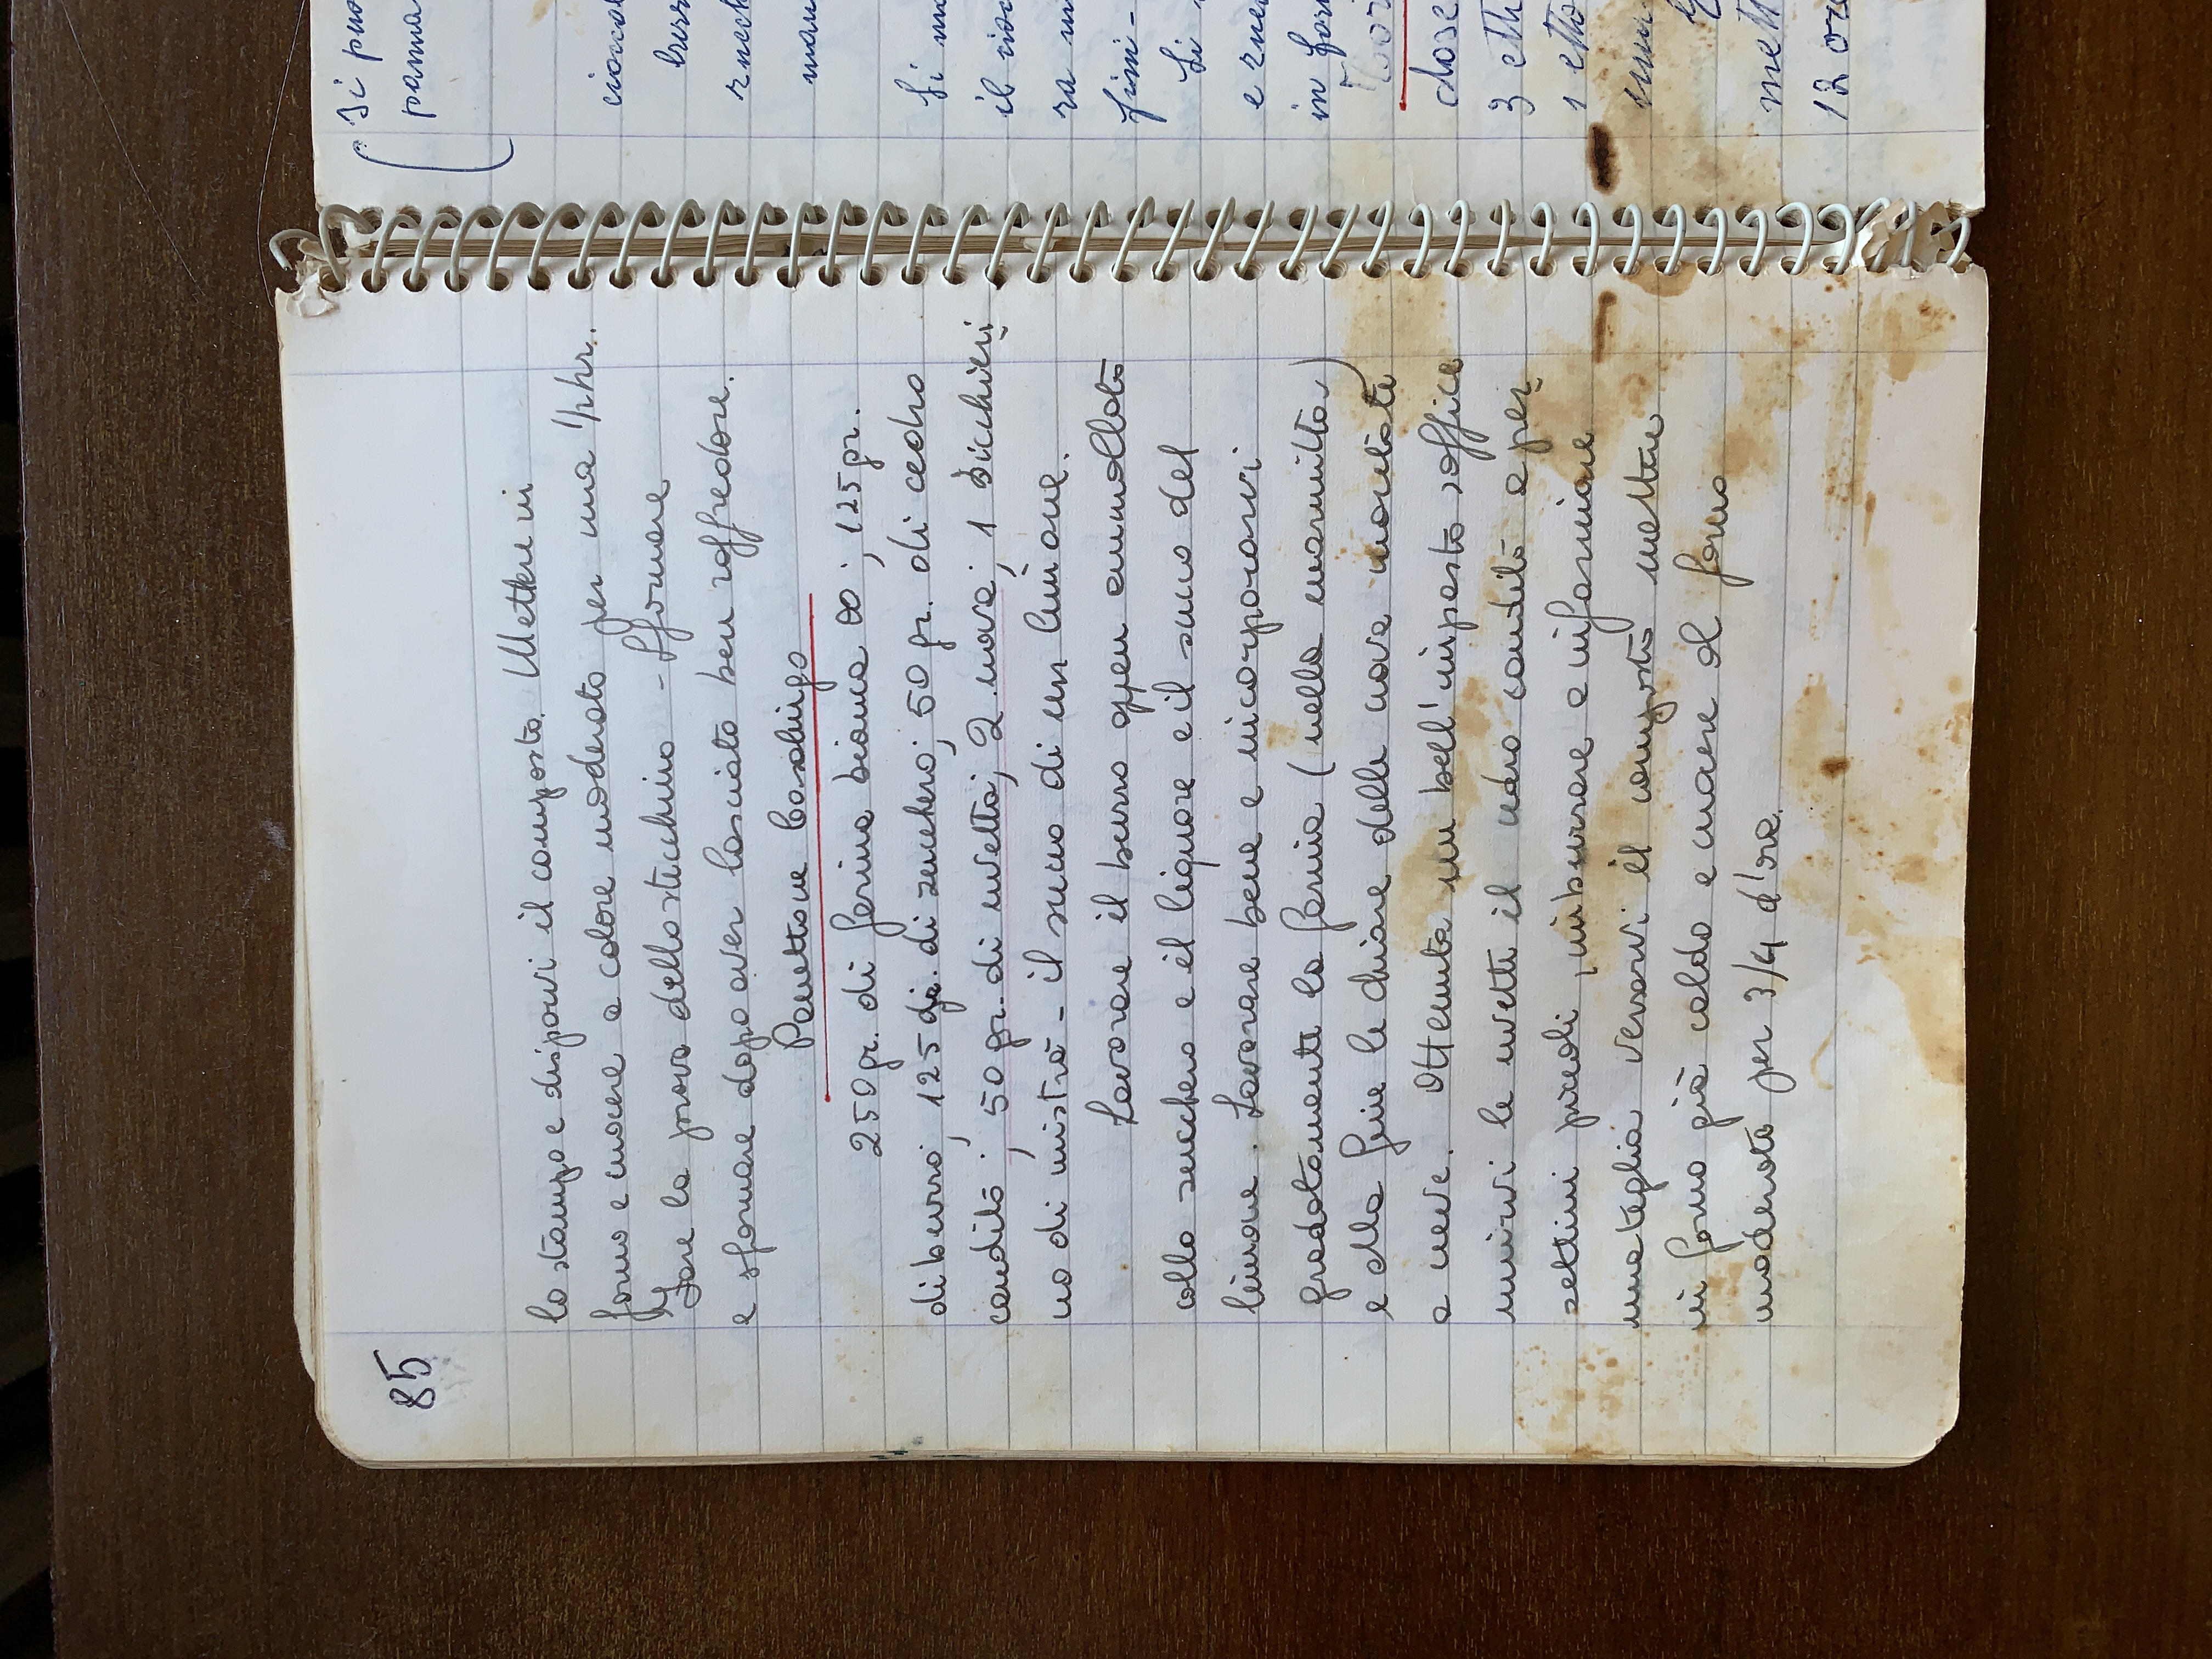 85
lo stampo e disporvi il composto. Mettere in
forno e cuocere a calore moderato per una 1/2 hr.
Fare la prova dello stecchino - Sfornare
e sformare dopo aver lasciato ben raffreddore.
Panettone Casalingo
250 gr. di farina bianca 00; 125 gr.
di burro; 125 gr. di zucchero; 50 gr. di cedro
candito; 50 gr. di uvetta; 2 uova; 1 bicchieri
no di mistrà - il succo di un limone.
Lavorare il burro appen ammollato
collo zucchero e il liquore e il succo del
limone. Lavorare bene e incorporarvi
gradatamente la farina (nella marmitta)
e alla fine le chiare delle uova montate
a neve. Ottenuta un bell'impasto soffice
unirvi le uvette il cedro candito a pez
zettini piccoli, imburrare e infarinare
una teglia versarvi il composto mettere
in forno già caldo e cuocere al forno
moderato per 3/4 d'ora.
Si può
panna
ciocco
burr
zucch
Si
il
ra
fini -
Si
e
in for
Tor
dose
3 etti
1 etto
mett
12 ore